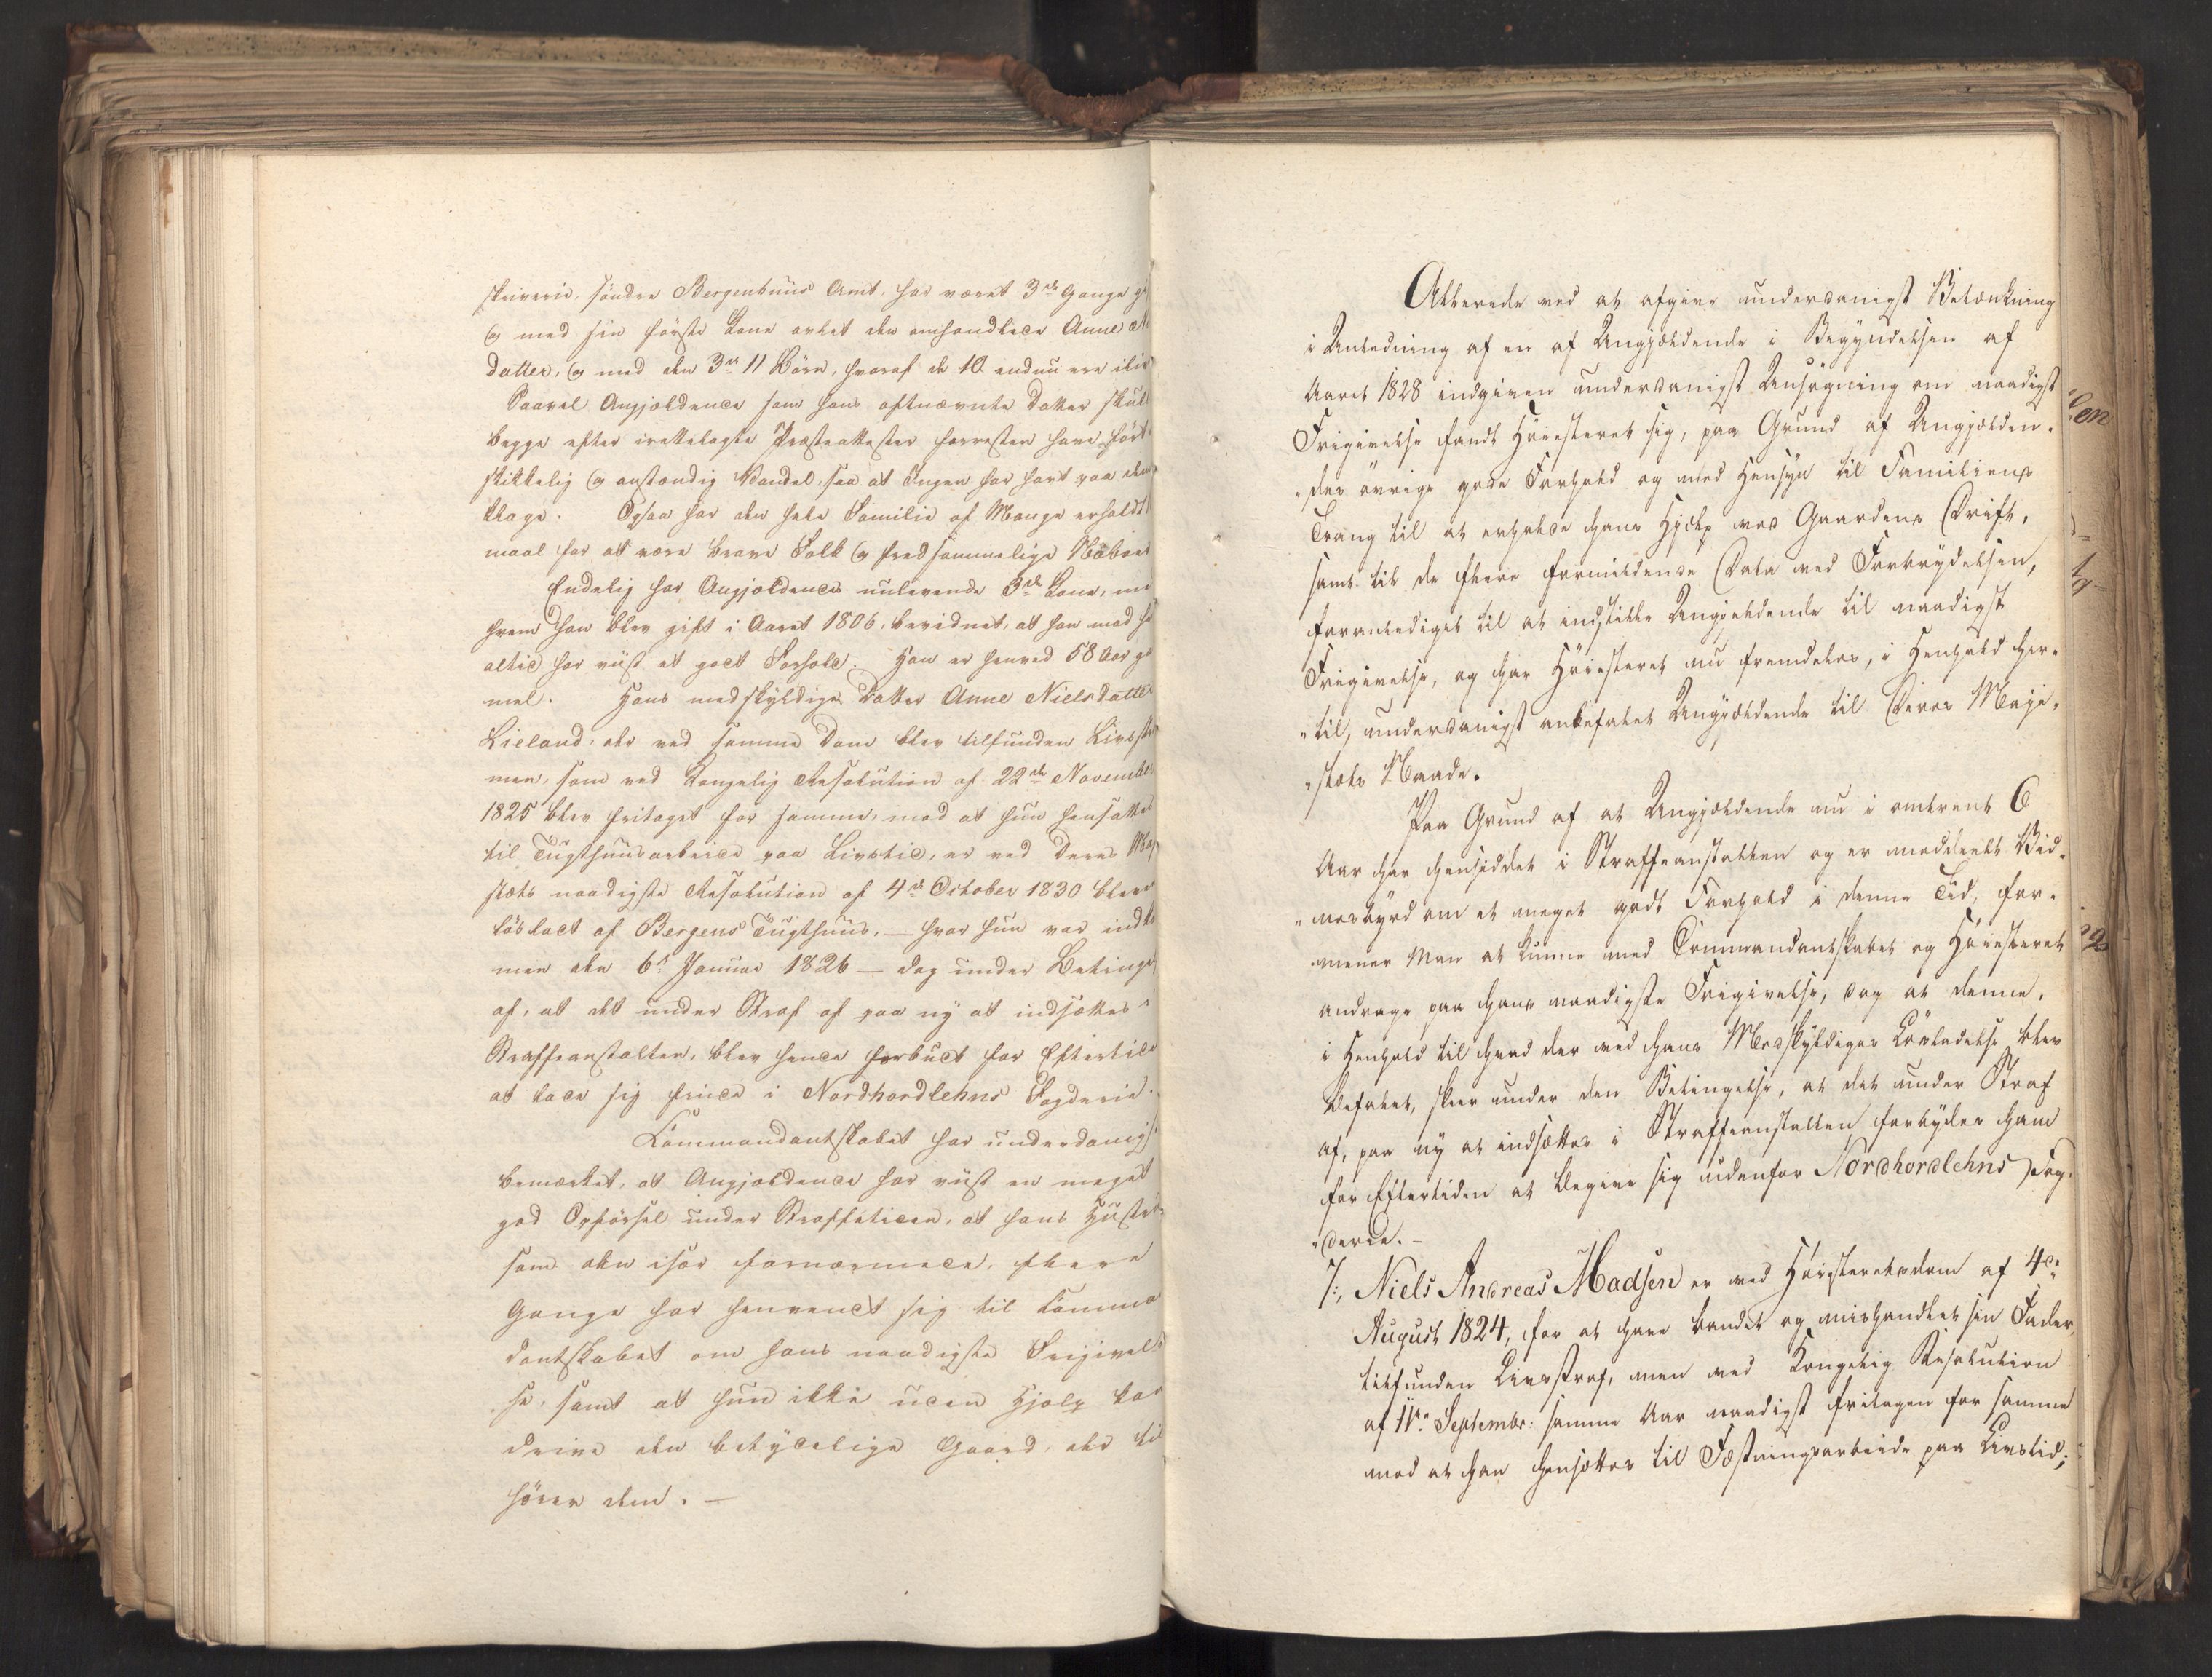 skriverie, söndre Bergenhuus Amt, har været 3de Gange g
og med sin förste Kone avlet den omhandlede Anne
datter, og med den 3die 11 Börn, hvoraf de 10 endnu ere ilive
Saavel Angjældende som hans oftnævnte Datter skul
begge efter irettelagte Præsteattester forresten have fört
skikkelig og anstændig Vandel, saa at Ingen har havt paa dem
klage. Ogsaa har den hele Familie af Mange erholdt
maal for at være brave Folk og fredsommelige Naboer
Endelig har Angjældendes nulevende 3die Kone, me
hvem han blev gift i Aaret 1806, bevidnet, at han mod he
altid har viist et godt Forhold. Han er henved 58 Aar ga
mel. Hans medskyldige Datter Anne Nielsdatter
Lieland, der ved samme Dom blev tilfunden Livsstr
men, som ved Kongelig Resolution af 22de November
1825 blev fritaget for samme, mod at hun hensattes
til Tugthuusarbeide paa Livstid, er ved Deres Maj
stæts naadigste Resolution af 4de October 1830 bleven
lösladt af Bergens Tugthuus, — hvor hun var indk
men den 6te Januar 1826 — dog under Betingels
af, at det under Straf af paa ny at indsættes i
Straffeanstalten, blev hende forbudt for Eftertide
at lade sig finde i Nordhordlehns Fogderie.
Kommandantskabet har underdanigst
bemærket, at Angjældende har viist en meget
god Opförsel under Straffetiden, at hans Hustru
som den især fornærmede, flere
Gange har henvendt sig til Komman
dantskabet om hans naadigste Frigivel
se, samt at hun ikke uden Hjelp kan
drive den betydelige Gaard, der til
hörer dem. —
Allerede ved at afgive underdanigst Betænkning
i Anledning af en af Angjældende i Begyndelsen af
Aaret 1828 indgiven underdanigst Ansøgning om naadigst
Frigivelse fandt Höiesteret sig, paa Grund af Angjælden-
"des övrige gode Forhold og med Hensyn til Familiens
Trang til at erholde hans Hjelp ved Gaardens Drift,
samt til de flere formildende Data ved Forbrydelsen,
foranlediget til at indstille Angjældende til naadigst
Frigivelse, og har Höiesteret nu fremdeles, i Henhold her-
"til, underdanigst anbefalet Angjældende til Deres Maje-
"stæts Naade.
Paa Grund af at Angjældende nu i omtrent 6
Aar har hensiddet i Straffeanstalten og er meddeelt Vid-
"nesbyrd om et meget godt Forhold i denne Tid, for-
mener Man at kunne med Commandantskabet og Höiesteret
andrage paa hans naadigste Frigivelse, dog at denne,
i Henhold til hvad der ved hans Medskyldiges Lösladelse blev
befalet, skeer under den Betingelse, at det under Straf
af, paa ny at indsættes i Straffeanstalten forbydes ham
for Eftertiden at begive sig udenfor Nordhordlehns Fog-
"derie. —
7:, Niels Andreas Madsen er ved Höiesteretsdom af 4de
August 1824, for at have bandet og mishandlet sin Fader,
tilfunden Livsstraf, men ved Kongelig Resolution
af 11te Septembr: samme Aar naadigst fritagen for samme
mod at han hensættes til Fæstningsarbeide paa Livstid;